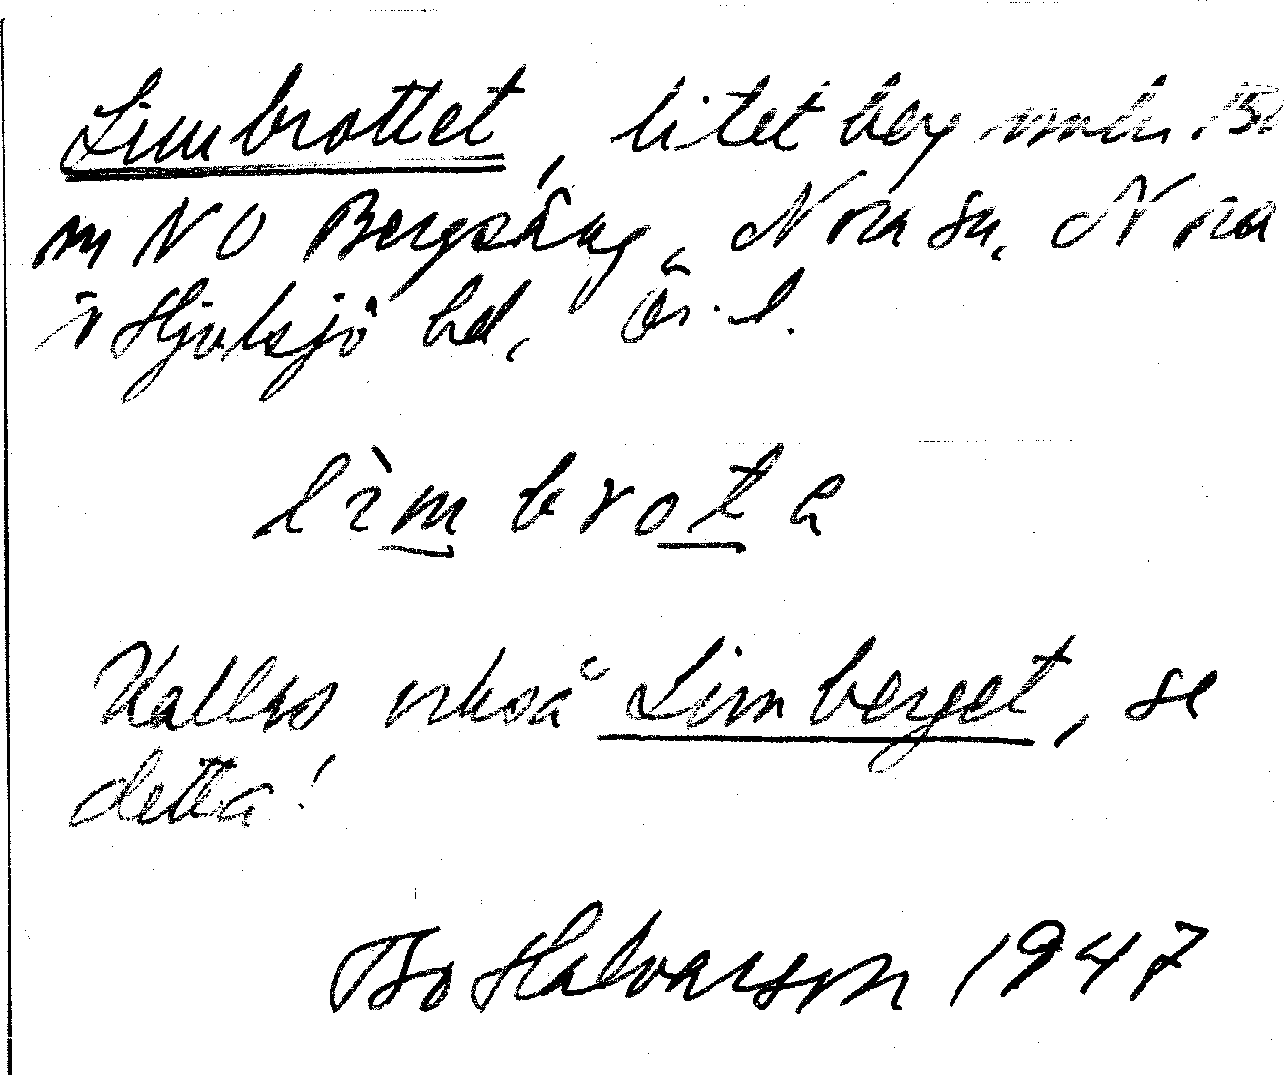 Limbrottet, litet berg
m NO Bergsäng, Nora sn, Nora
o Hjulsjö hd, Ör. l.
lìm brota
Kallas också Limberget, se
detta!
Bo Halvarson 1947